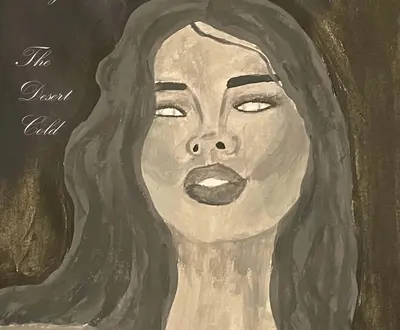 The
Desert
Cold